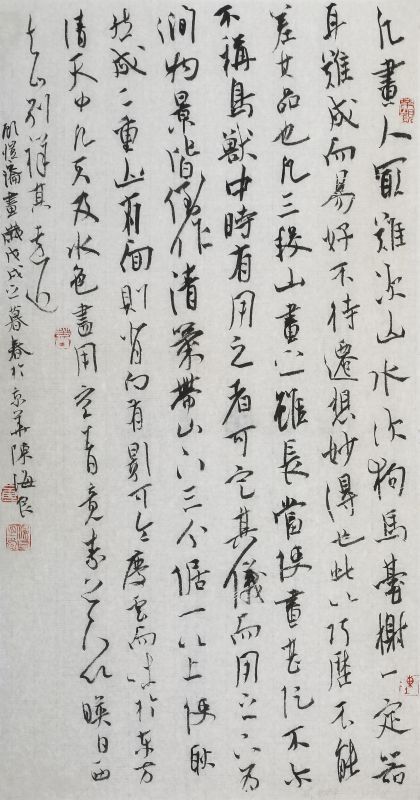 凡畫人冣難次山水次狗馬臺榭一定器
耳難成而易好不待遷想妙得也此以巧歷不能
差其品也凡三段山畫之雖長當使畫甚促不尔
不稱鳥獸中時有用之者可定其儀而用之下為
澗物景皆倒作清氣帶山下三分倨一以上使耿
然成二重山有面則背向有影可令慶雲而吐於東方
清天中凡天及水色盡用空青竟素上下以暎日西
去山別詳其遠近
愷論畫歲戊戌之暮春於京華陳海良